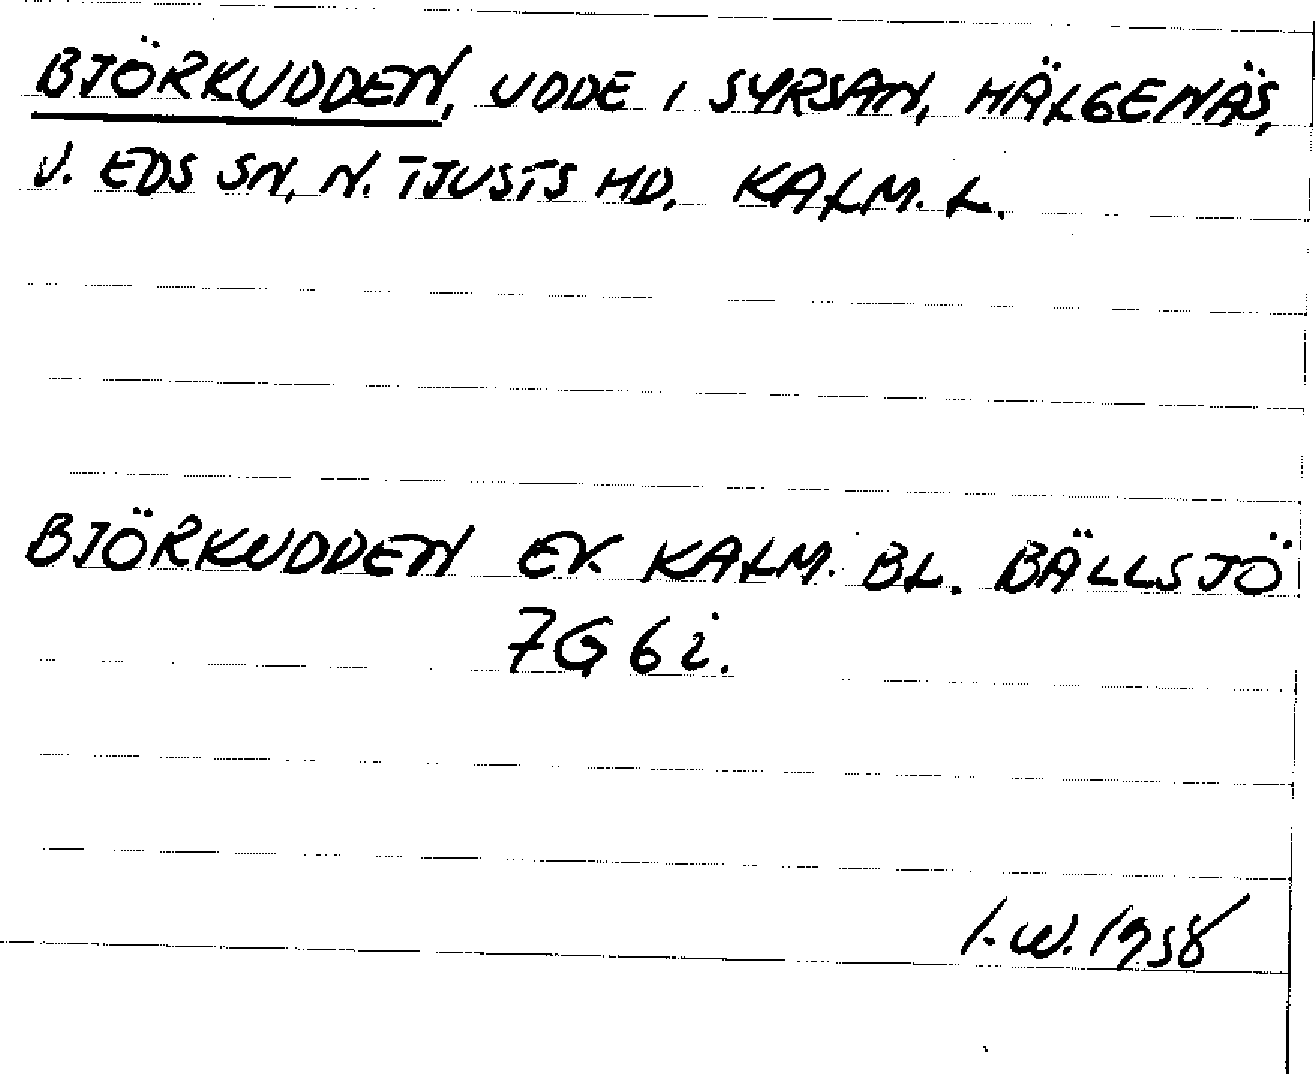 BJÖRKUDDEN, UDDE I SYRSAN, HÄLGENÄS,
V. EDS SN, N. TJUSTS HD, KALM. L.
BJÖRKUDDEN EK. KALM. BL. BÄLLSJÖ
7G 6i.
I.W. 1958